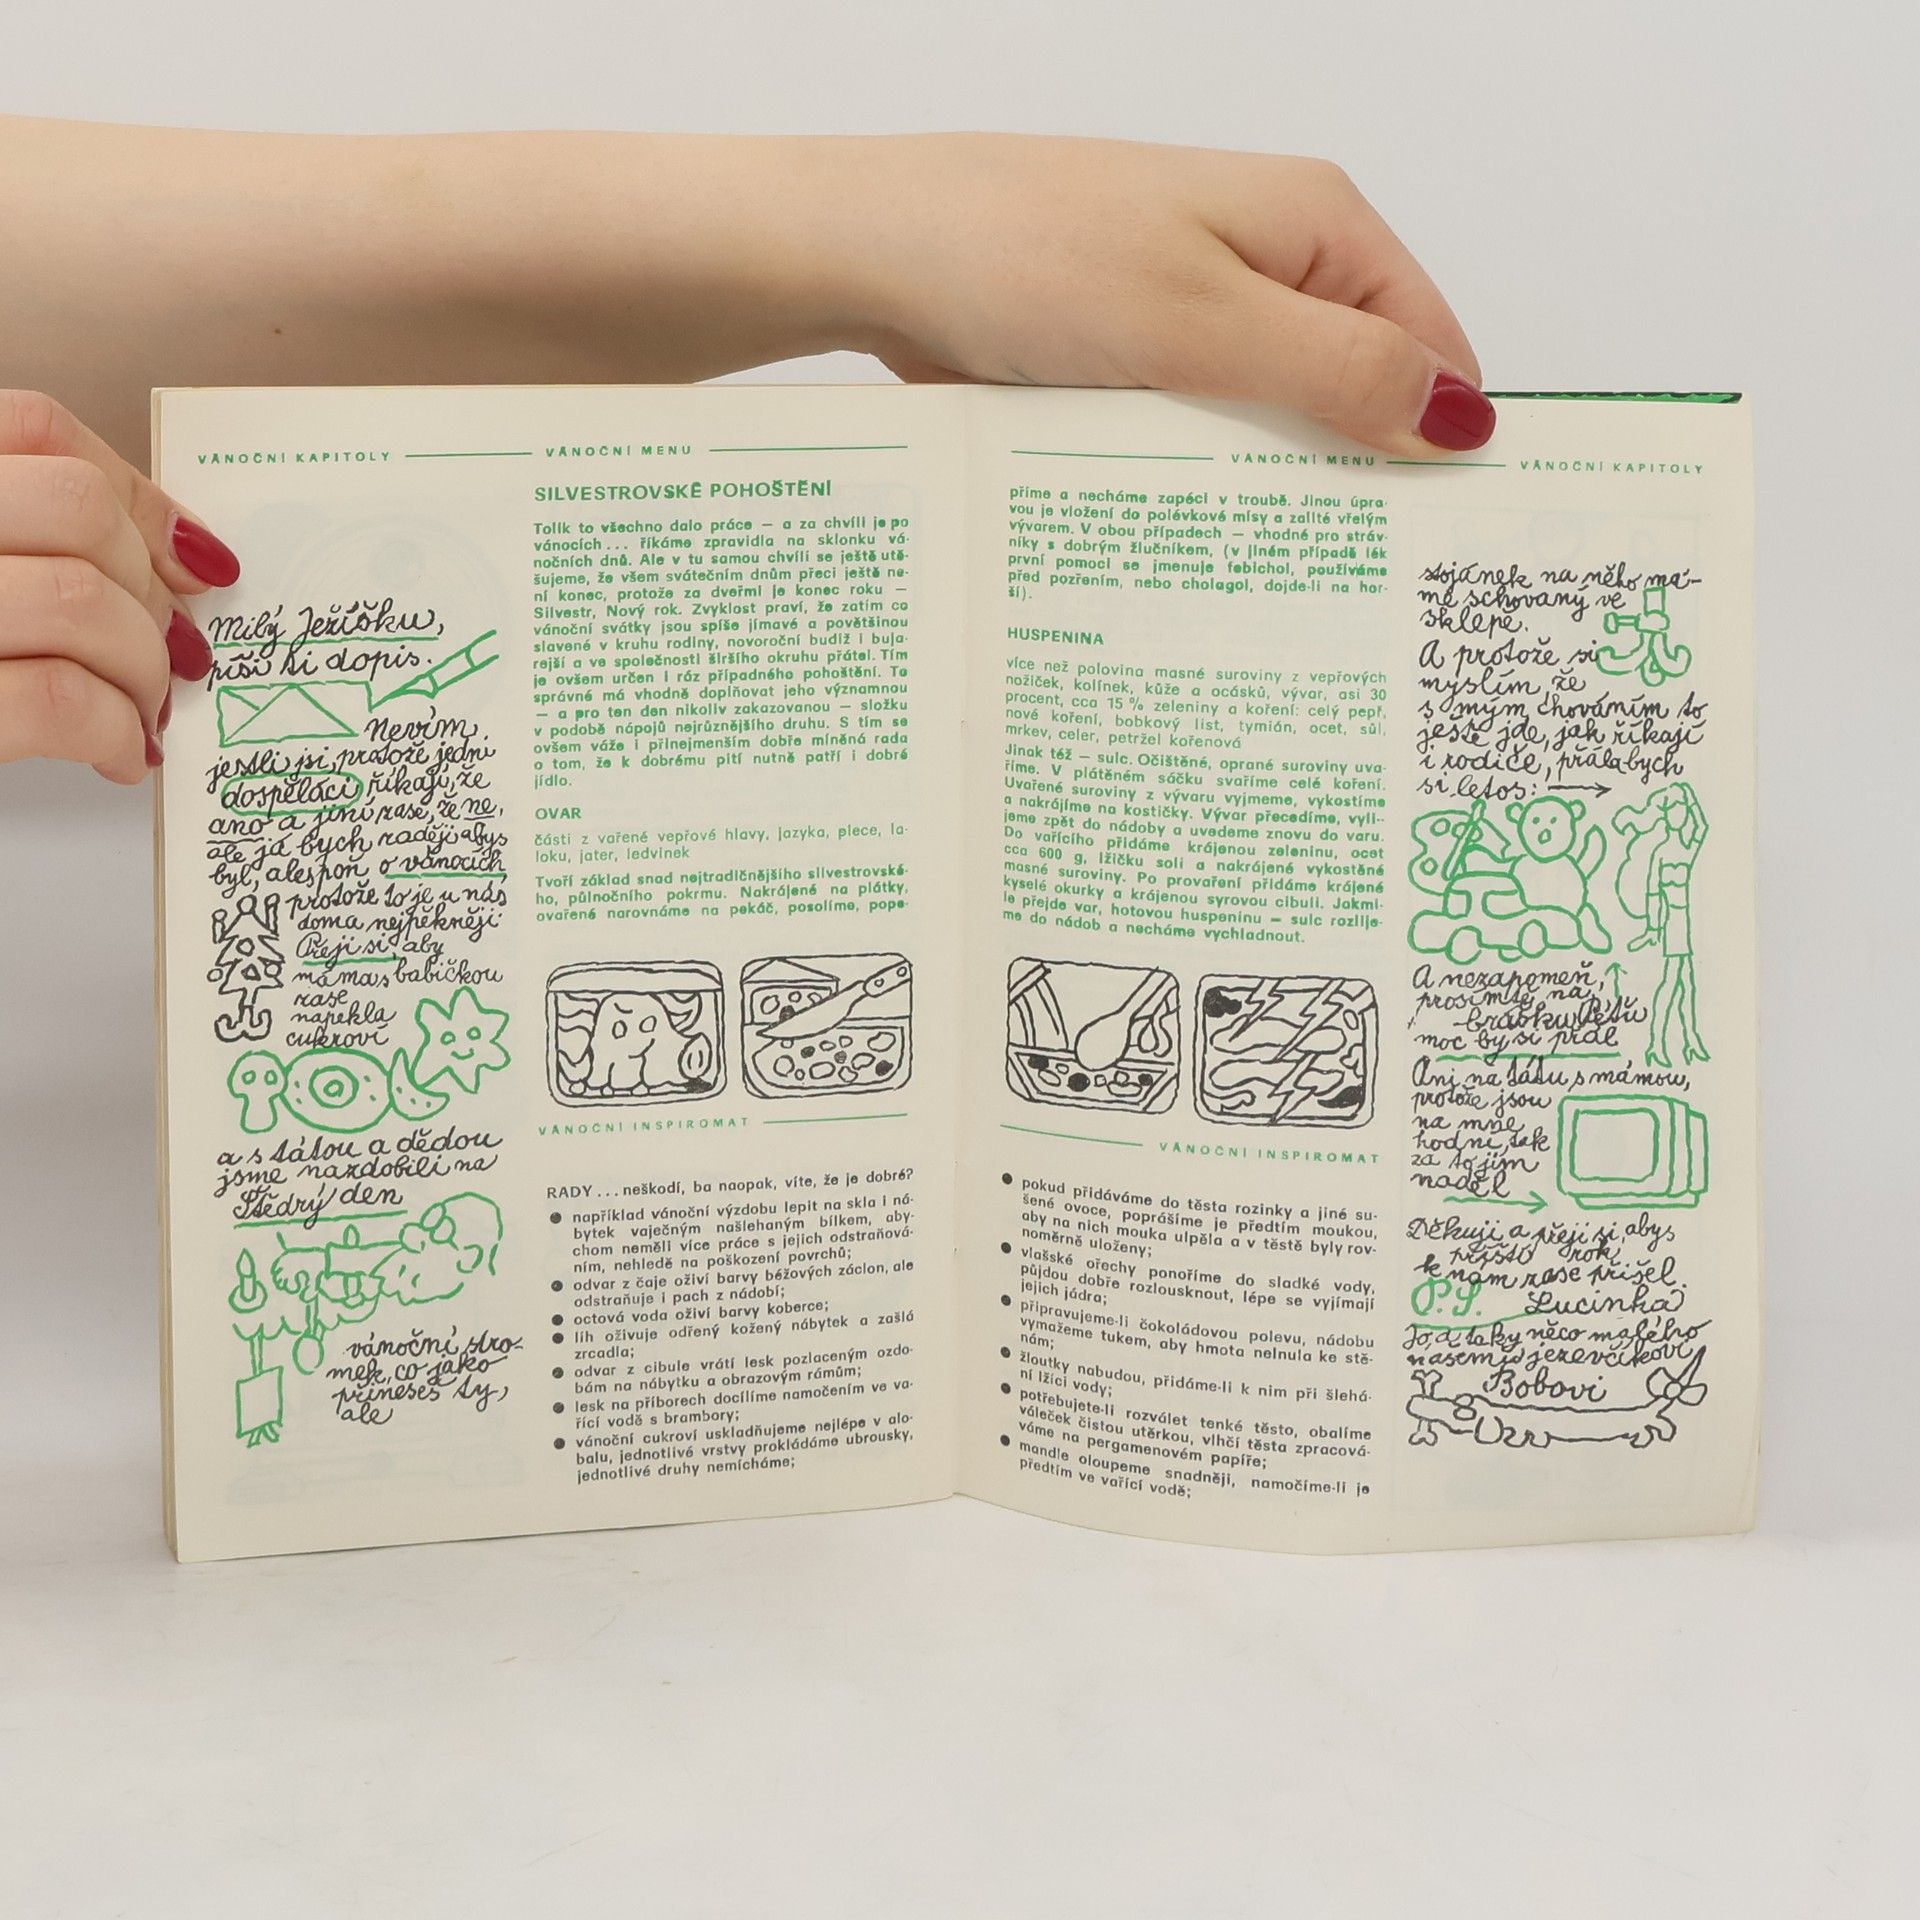 VÁNOČNÍ KAPITOLY
VÁNOČNÍ MENU
Milý Ježíšku,
píši ti dopis.
Nevím,
jestli jsi, protože jedni
dospěláci říkají, že
ano a jiní zase, že ne,
ale já bych raději abys
byl, alespoň o vánocích,
protože to je u nás
doma nejpěkněji.
Přeji si, aby
máma s babičkou
zase
napekla
cukroví
a s tátou a dědou
jsme nazdobili na
Štědrý den
vánoční stro-
mek, co jako
přineseš ty,
ale
SILVESTROVSKÉ POHOŠTĚNÍ
Tolik to všechno dalo práce — a za chvíli je po
vánocích... říkáme zpravidla na sklonku vá-
nočních dnů. Ale v tu samou chvíli se ještě utě-
šujeme, že všem svátečním dnům přeci ještě ne-
ní konec, protože za dveřmi je konec roku —
Silvestr, Nový rok. Zvyklost praví, že zatím co
vánoční svátky jsou spíše jímavé a povětšinou
slavené v kruhu rodiny, novoroční budiž i buja-
rejší a ve společnosti širšího okruhu přátel. Tím
je ovšem určen i ráz případného pohoštění. To
správné má vhodně doplňovat jeho významnou
— a pro ten den nikoliv zakazovanou — složku
v podobě nápojů nejrůznějšího druhu. S tím se
ovšem váže i přinejmenším dobře míněná rada
o tom, že k dobrému pití nutně patří i dobré
jídlo.
OVAR
části z vařené vepřové hlavy, jazyka, plece, la-
loku, jater, ledvinek
Tvoří základ snad nejtradičnějšího silvestrovské-
ho, půlnočního pokrmu. Nakrájené na plátky,
ovařené narovnáme na pekáč, posolíme, pope-
VÁNOČNÍ INSPIROMAT
RADY ... neškodí, ba naopak, víte, že je dobré?
● například vánoční výzdobu lepit na skla i ná-
bytek vaječným našlehaným bílkem, aby-
chom neměli více práce s jejich odstraňová-
ním, nehledě na poškození povrchů;
● odvar z čaje oživí barvy béžových záclon, ale
odstraňuje i pach z nádobí;
● octová voda oživí barvy koberce;
● líh oživuje odřený kožený nábytek a zašlá
zrcadla;
● odvar z cibule vrátí lesk pozlaceným ozdo-
bám na nábytku a obrazovým rámům;
● lesk na příborech docílíme namočením ve va-
řící vodě s brambory;
● vánoční cukroví uskladňujeme nejlépe v alo-
balu, jednotlivé vrstvy prokládáme ubrousky,
jednotlivé druhy nemícháme;
VÁNOČNÍ MENU
VÁNOČNÍ KAPITOLY
příme a necháme zapéci v troubě. Jinou úpra-
vou je vložení do polévkové mísy a zalité vřelým
vývarem. V obou případech — vhodné pro stráv-
níky s dobrým žlučníkem, (v jiném případě lék
první pomoci se jmenuje febichol, používáme
před pozřením, nebo cholagol, dojde-li na hor-
ší).
HUSPENINA
více než polovina masné suroviny z vepřových
nožiček, kolínek, kůže a ocásků, vývar, asi 30
procent, cca 15 % zeleniny a koření: celý pepř,
nové koření, bobkový list, tymián, ocet, sůl,
mrkev, celer, petržel kořenová
Jinak též — sulc. Očištěné, oprané suroviny uva-
říme. V plátěném sáčku svaříme celé koření.
Uvařené suroviny z vývaru vyjmeme, vykostíme
a nakrájíme na kostičky. Vývar přecedíme, vyli-
jeme zpět do nádoby a uvedeme znovu do varu.
Do vařícího přidáme krájenou zeleninu, ocet
cca 600 g, lžičku soli a nakrájené vykostěné
masné suroviny. Po provaření přidáme krájené
kyselé okurky a krájenou syrovou cibuli. Jakmi-
le přejde var, hotovou huspeninu — sulc rozlije-
me do nádob a necháme vychladnout.
VÁNOČNÍ INSPIROMAT
● pokud přidáváme do těsta rozinky a jiné su-
šené ovoce, poprášíme je předtím moukou,
aby na nich mouka ulpěla a v těstě byly rov-
noměrně uloženy;
● vlašské ořechy ponoříme do sladké vody,
půjdou dobře rozlousknout, lépe se vyjímají
jejich jádra;
● připravujeme-li čokoládovou polevu, nádobu
vymažeme tukem, aby hmota nelnula ke stě-
nám;
● žloutky nabudou, přidáme-li k nim při šlehá-
ní lžíci vody;
● potřebujete-li rozválet tenké těsto, obalíme
váleček čistou utěrkou, vlhčí těsta zpracová-
váme na pergamenovém papíře;
● mandle oloupeme snadněji, namočíme-li je
předtím ve vařící vodě;
stojánek na něho má-
me schovaný ve
sklepě.
A protože si
myslím, že
s mým chováním to
ještě jde, jak říkají
i rodiče, přála bych
si letos:
A nezapomeň,
prosím tě, na
brášku Péťu
moc by si přál
Ani na tátu s mámou,
protože jsou
na mne
hodní, tak
za to jim
naděl
Děkuji a přeji si, abys
příští rok
k nám zase přišel.
P.S. Lucinka
Jo, a taky něco malého
našemu jezevčíkovi
Bobovi